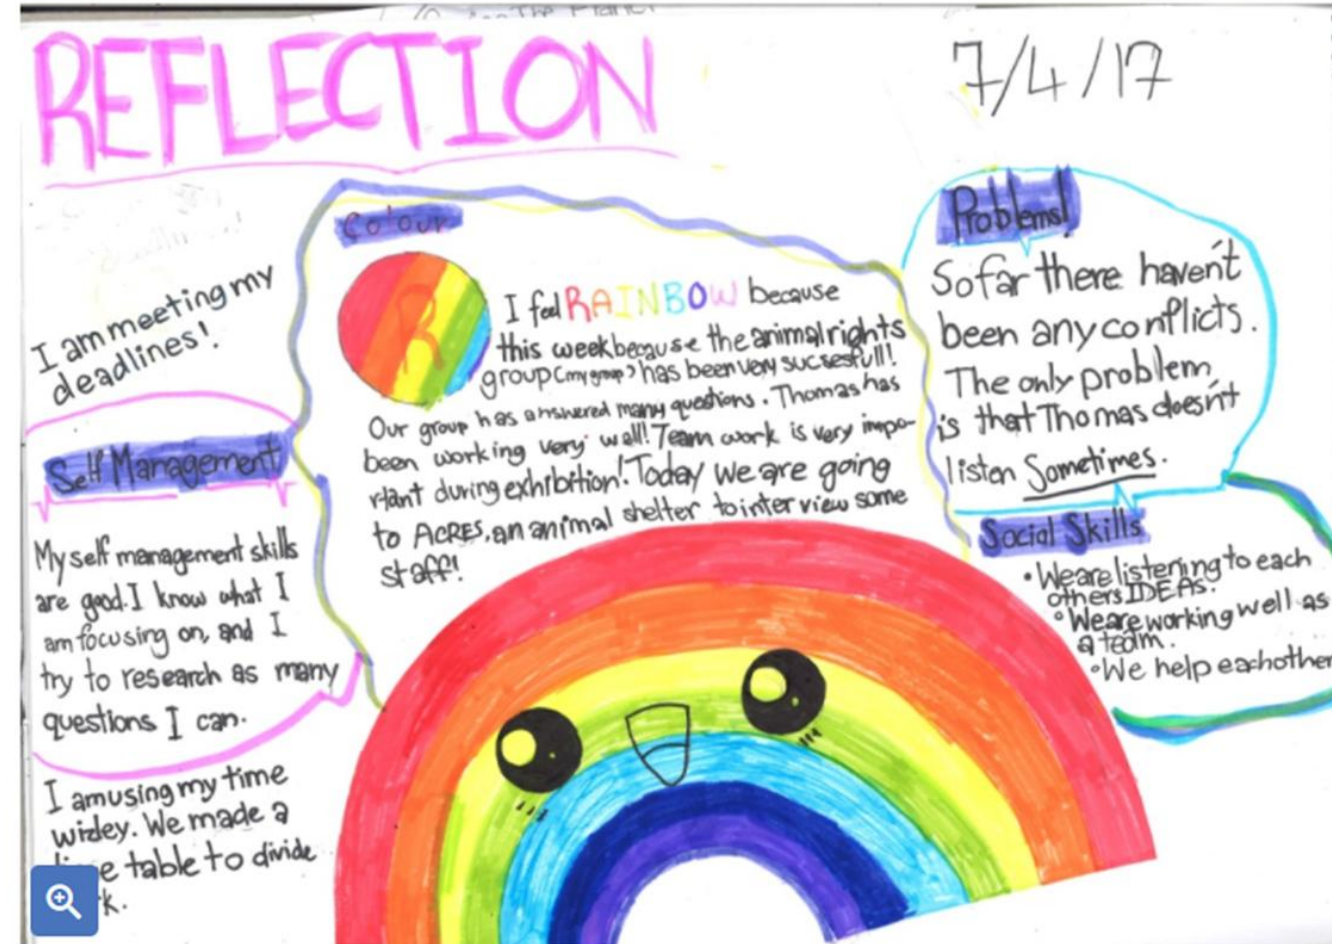 REFLECTION
7/4/17
I am meeting my
deadlines!
Self Management
My self management skills
are good. I know what I
am focusing on, and I
try to research as many
questions I can.
I am using my time
wizley. We made a
table to divide
Colour
R
I feel RAINBOW because
this week because the animal rights
group (my group) has been very succsesfull!
Our group has answered many questions. Thomas has
been working very well! Team work is very impo-
rtant during exhibition! Today we are going
to ACRES, an animal shelter to inter view some
staff!
Problems!
So far there haven't
been any conflicts.
The only problem
is that Thomas doesn't
listen Sometimes.
Social Skills
• We are listening to each
others IDEAs.
• We are working well as
a team.
• We help eachother